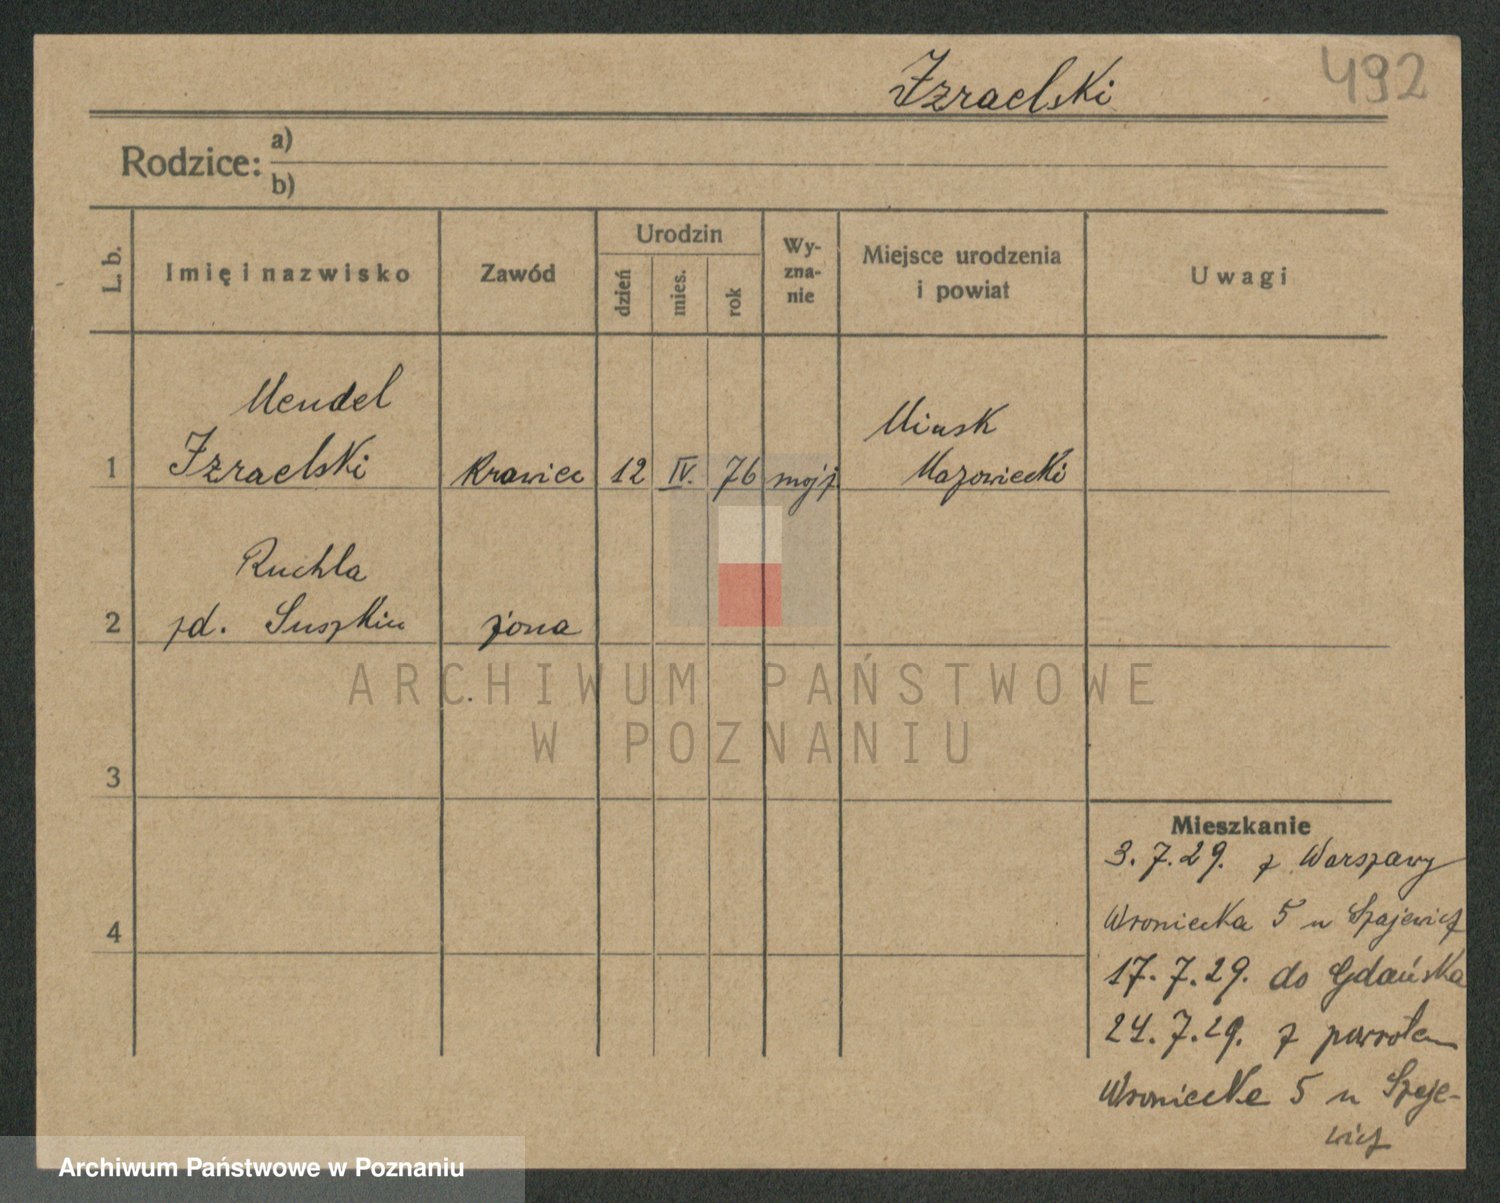 Izraelski 492
Rodzice: a)
b)
L. b. Imię i nazwisko Zawód Urodzin dzień mies. rok Wy-zna-nie Miejsce urodzenia i powiat Uwagi
Mendel
1 Izraelski Krawiec 12 IV. 76 mojż
Minsk
Mazowiecki
Ruchla
2 żona
3
ARCHIWUM PAŃSTWOWE
W POZNANIU
4
Mieszkanie
3.7.29. z Warszawy
Wroniecka 5 u Szajewicz
17.7.29. do Gdańska
24.7.29. z powrotem
Wroniecke 5 u Szaje-
wicz
Archiwum Państwowe w Poznaniu